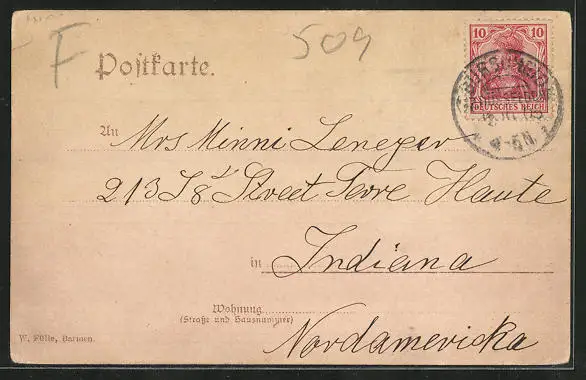 F
504
Postkarte.
10 10
DEUTSCHES REICH
4-5N.
An Mrs Minni Leneger
213 S 8 Street Terre Haute
in Indiana
Wohnung
(Straße und Hausnummer)
Nordamericka
W. Fülle, Barmen.